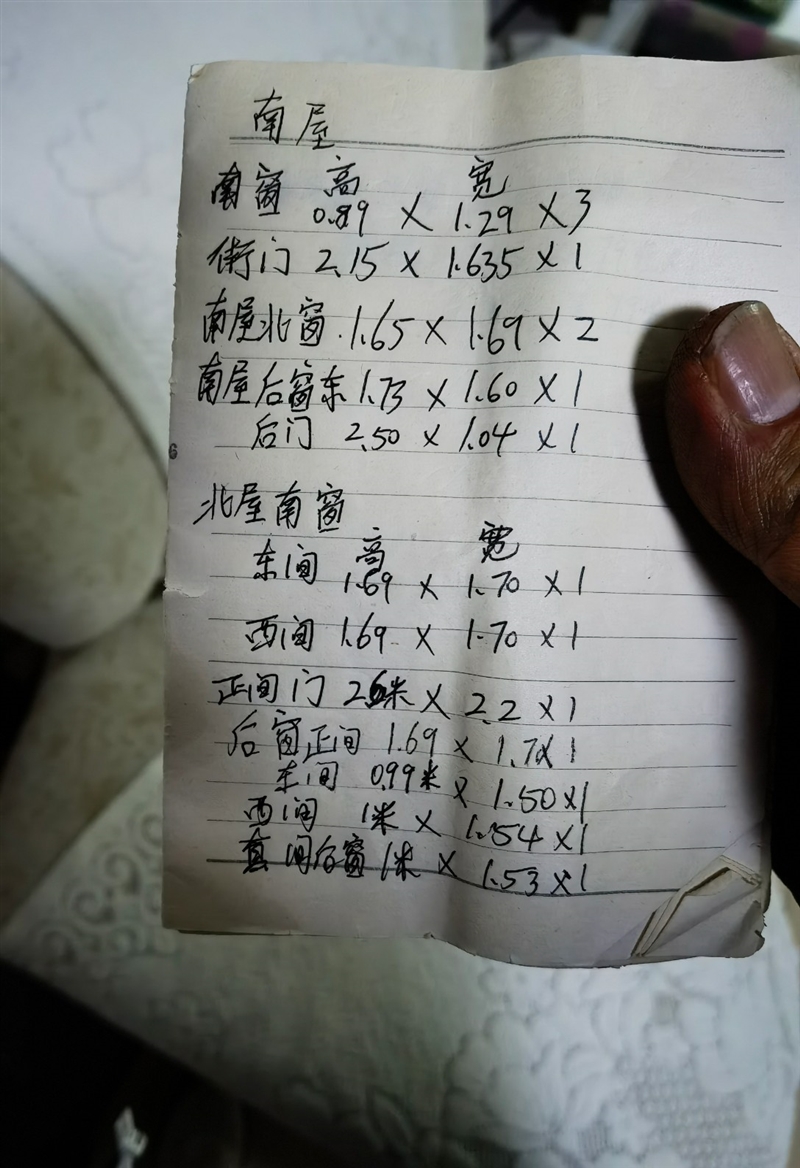 南屋
南窗 高 宽
0.89 × 1.29 × 3
街门 2.15 × 1.635 × 1
南屋北窗 1.65 × 1.69 × 2
南屋后窗东 1.73 × 1.60 × 1
后门 2.50 × 1.04 × 1
6
北屋南窗
高 宽
东间 1.69 × 1.70 × 1
西间 1.69 × 1.70 × 1
正间门 2.6米 × 2.2 × 1
后窗正间 1.69 × 1.7 × 1
东间 0.99米 × 1.50 × 1
西间 1米 × 1.54 × 1
间后窗 1米 × 1.53 × 1